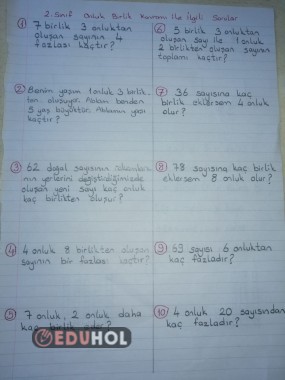 2. Sınıf Onluk Birlik Kavramı ile İlgili Sorular
① 7 birlik 3 onluktan
oluşan sayının 4
fazlası kaçtır?
② Benim yaşım 1 onluk 3 birlik
ten oluşuyor. Ablam benden
5 yaş büyüktür. Ablamın yaşı
kaçtır?
③ 62 doğal sayısının rakamları
nın yerlerini değiştirdiğimizde
oluşan yeni sayı kaç onluk
kaç birlikten oluşur?
④ 4 onluk 8 birlikten oluşan
sayının bir fazlası kaçtır?
⑤ 7 onluk, 2 onluk daha
kaç birlik eder?
⑥ 5 birlik 3 onluktan
oluşan sayı ile 1 onluk
2 birlikten oluşan sayının
toplamı kaçtır?
⑦ 36 sayısına kaç
birlik eklersem 4 onluk
olur?
⑧ 78 sayısına kaç birlik
eklersem 8 onluk olur?
⑨ 63 sayısı 6 onluktan
kaç fazladır?
⑩ 4 onluk 20 sayısından
kaç fazladır?
EDUHOL